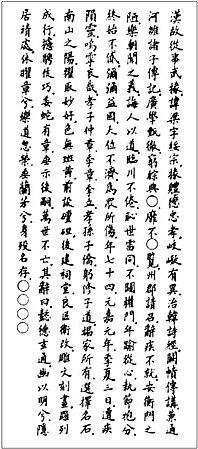 漢故從事武掾諱梁字綏宗掾體德忠孝岐嶷有異治韓詩經闕幘傳講兼通
河雒諸子傳記廣學甄徹窮綜典○靡不○覽州郡請召辭疾不就安衡門之
陋樂朝聞之義誨人以道臨川不倦恥世雷同不闚權門年踰從心執節抱分
終始不貳彌彌益固大位不濟為眾所傷年七十四元嘉元年季夏三日遭疾
隕靈嗚呼哀哉孝子仲章季章季立孝孫子僑躬修子道竭家所有選擇名石
南山之陽擢取妙好色無斑黃前設壇墠後建祠堂良匠衛改雕文刻畫羅列
成行攄騁技巧委蛇有章垂示後嗣萬世不亡其辭曰懿德玄通幽以明兮隱
居靖處休曜章兮樂道忽榮垂蘭芳兮身歿名存○○○○